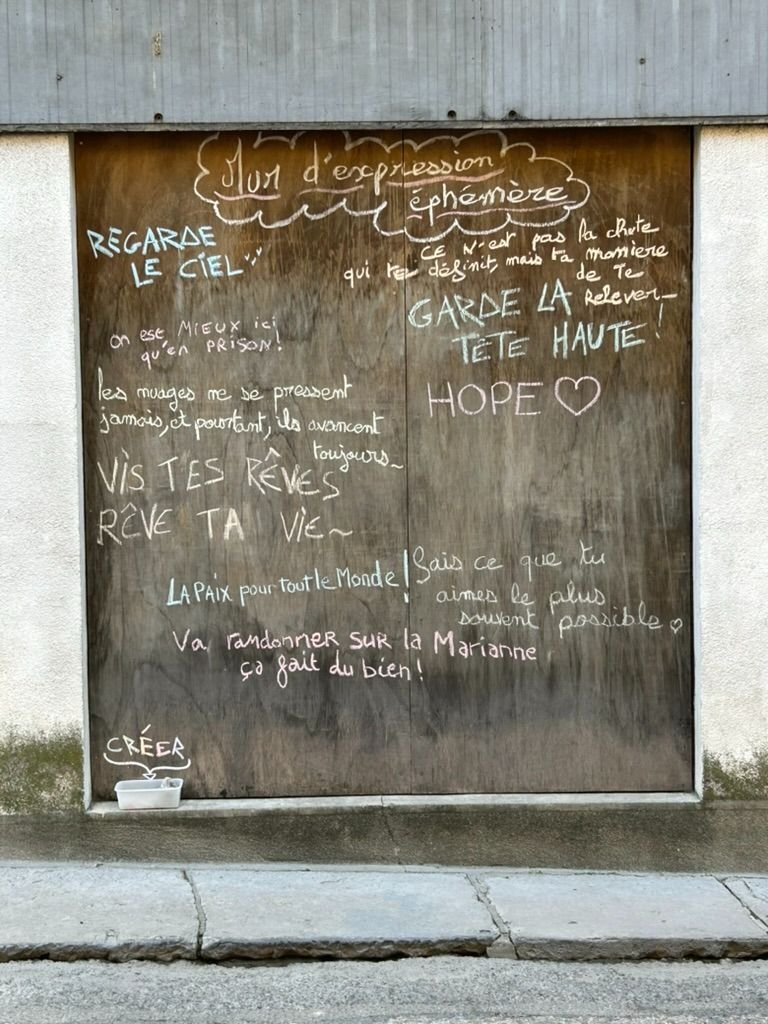 Mur d'expression
éphémère
REGARDE
LE CIEL
CE N'est pas la chute
qui te définit, mais ta manière
de Te
Relever
GARDE LA
TÊTE HAUTE!
on ese MIEUX ici
qu'en PRISON!
HOPE ♡
les nuages ne se pressent
jamais, et pourtant, ils avancent
toujours~
VIS TES RÊVES
RÊVE TA VIE~
LA PAIX pour Tout le Monde!
Fais ce que tu
aimes le plus
souvent possible ♡
Va randonner SUR la Marianne
ça fait du bien!
CRÉER